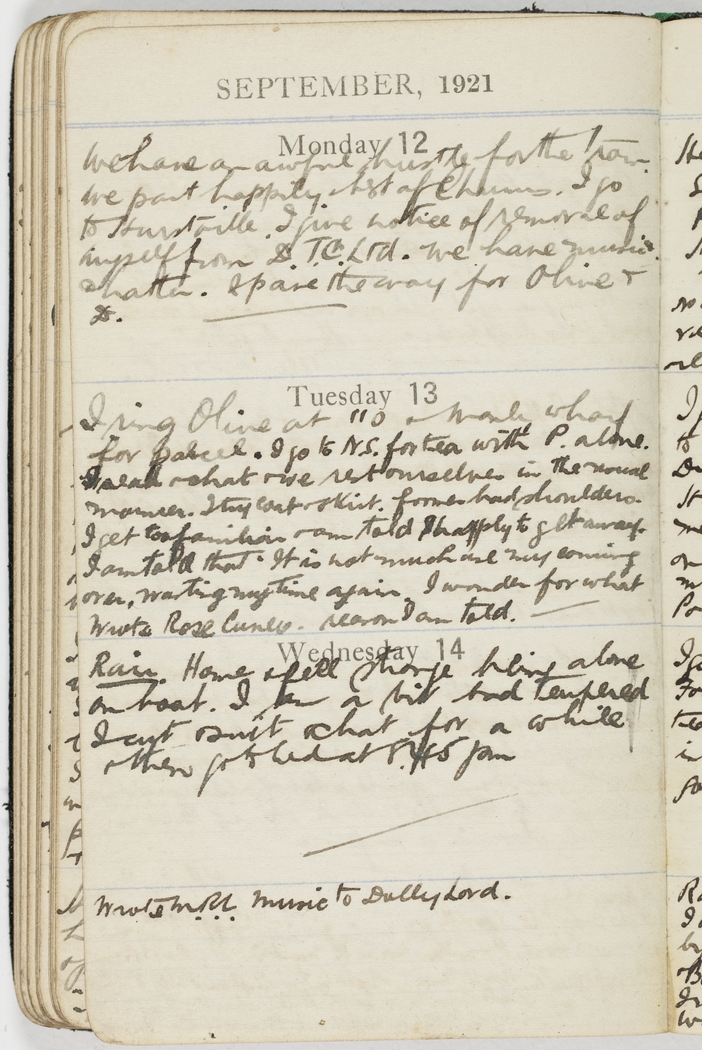 SEPTEMBER, 1921
Monday 12
We have an awful hustle for the train
We part happily best of chums. I go
to Hurstville. I give notice of removal of
myself from D. T. C. Ltd. We have music
& natter. I pave the way for Olive &
D.
Tuesday 13
I ring Olive at 110 & Manly wharf
for parcel. I go to N.S. for tea with P. alone.
I read & chat & we rest ourselves in the usual
manner. I try coat & skirt. former bad shoulders.
I get too familiar & am told I happly to get away.
I am told that It is not much use my coming
over, wasting my time again. I wonder for what
Wrote Rose Cuneo. reason I am told.
Wednesday 14
Rain. Home & feel strange being alone
on boat. I am a bit bad tempered
I cut suit & chat for a while
& then go to bed at 8.45 pm
Wrote music to Dolly Lord.